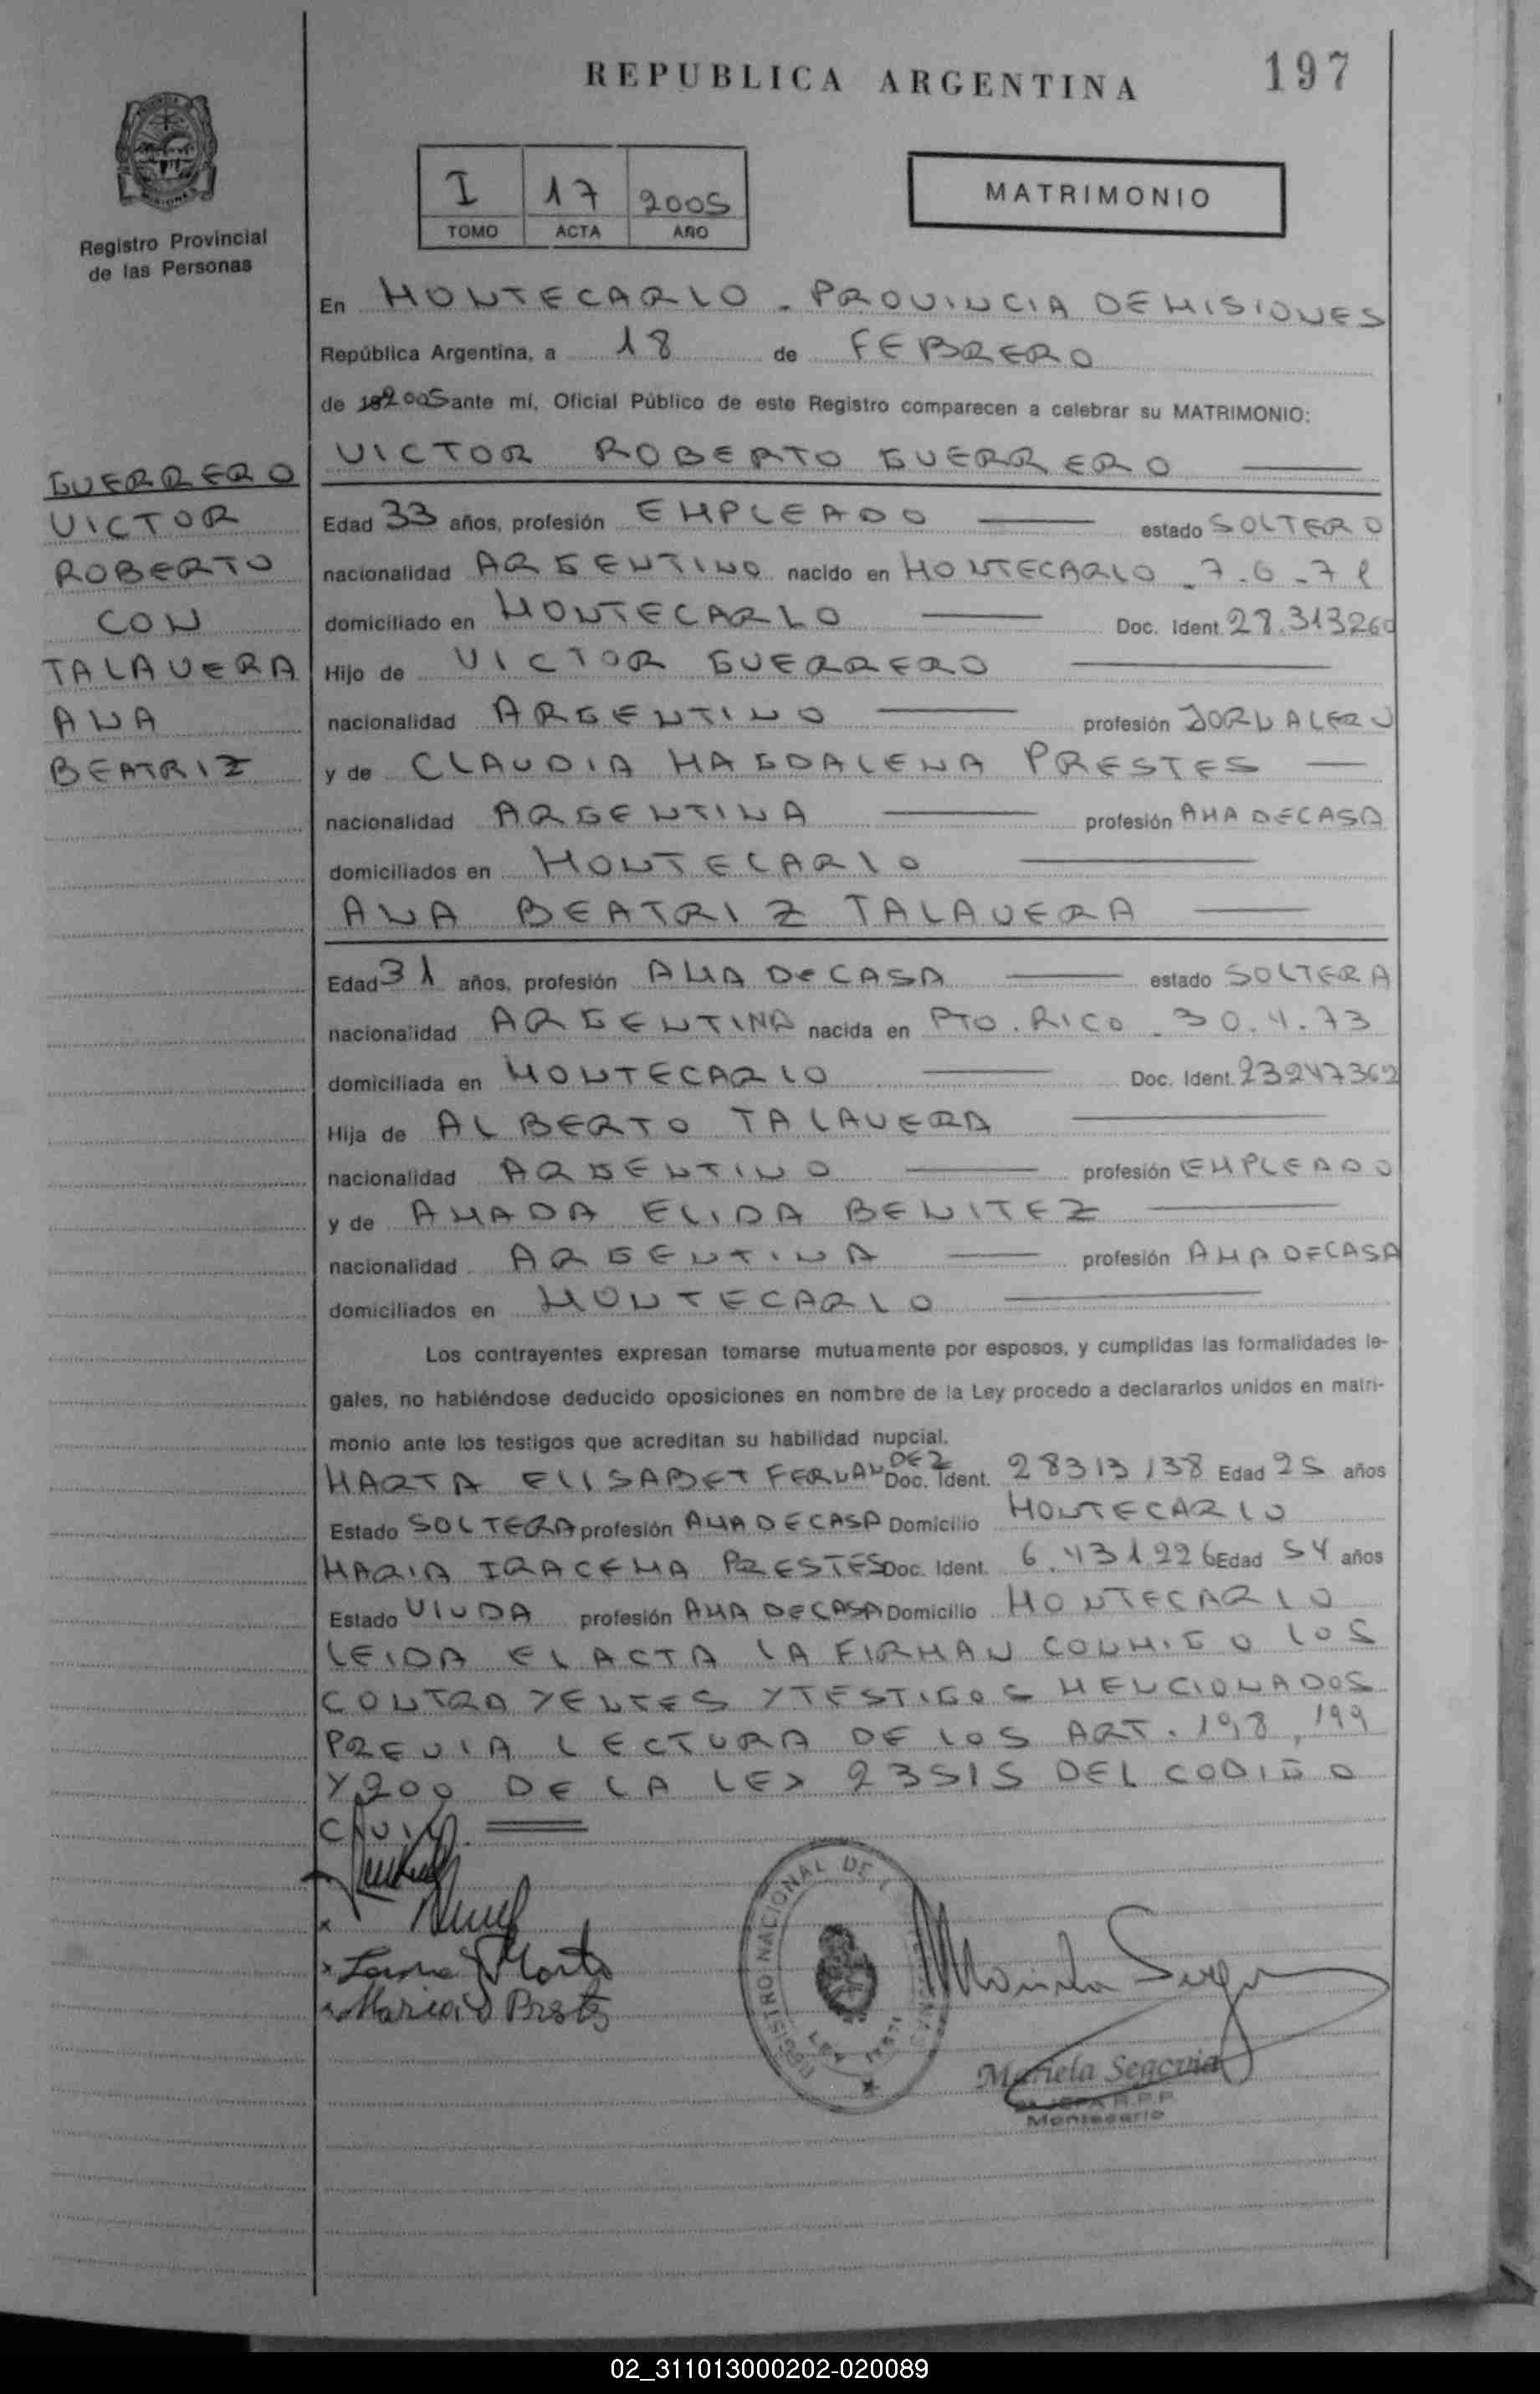 REPUBLICA ARGENTINA
197
Registro Provincial
de las Personas
I 17 2005
TOMO ACTA AÑO
MATRIMONIO
GUERRERO
VICTOR
ROBERTO
CON
TALAVERA
ANA
BEATRIZ
En MONTECARLO - PROVINCIA DE MISIONES
República Argentina, a 18 de FEBRERO
de 2005 ante mí, Oficial Público de este Registro comparecen a celebrar su MATRIMONIO:
VICTOR ROBERTO GUERRERO
Edad 33 años, profesión EMPLEADO estado SOLTERO
nacionalidad ARGENTINO nacido en MONTECARLO - 7-6-71
domiciliado en MONTECARLO Doc. Ident. 28.313260
Hijo de VICTOR GUERRERO
nacionalidad ARGENTINO profesión JORNALERO
y de CLAUDIA MAGDALENA PRESTES
nacionalidad ARGENTINA profesión AMA DE CASA
domiciliados en MONTECARLO
ANA BEATRIZ TALAVERA
Edad 31 años, profesión AMA De CASA estado SOLTERA
nacionalidad ARGENTINA nacida en PTO. RICO - 30.4.73
domiciliada en MONTECARLO Doc. Ident. 23247362
Hija de ALBERTO TALAVERA
nacionalidad ARGENTINO profesión EMPLEADO
y de AMADA ELIDA BENITEZ
nacionalidad ARGENTINA profesión AMA DE CASA
domiciliados en MONTECARLO
Los contrayentes expresan tomarse mutuamente por esposos, y cumplidas las formalidades le-
gales, no habiéndose deducido oposiciones en nombre de la Ley procedo a declararlos unidos en matri-
monio ante los testigos que acreditan su habilidad nupcial.
MARTA ELISABET FERNANDEZ Doc. Ident. 28313138 Edad 25 años
Estado SOLTERA profesión AMA DE CASA Domicilio MONTECARLO
MARIA IRACEMA PRESTES Doc. Ident. 6.431.226 Edad 54 años
Estado VIUDA profesión AMA DE CASA Domicilio MONTECARLO
LEIDA EL ACTA LA FIRMAN CONMIGO LOS
CONTRAYENTES Y TESTIGOS MENCIONADOS
PREVIA LECTURA DE LOS ART. 198, 199
Y 200 DE LA LEY 23515 DEL CODIGO
CIVIL.
REGISTRO NACIONAL DE
Mariela Segovia
JEFA R.P.P.
Montecarlo
02_311013000202-020089